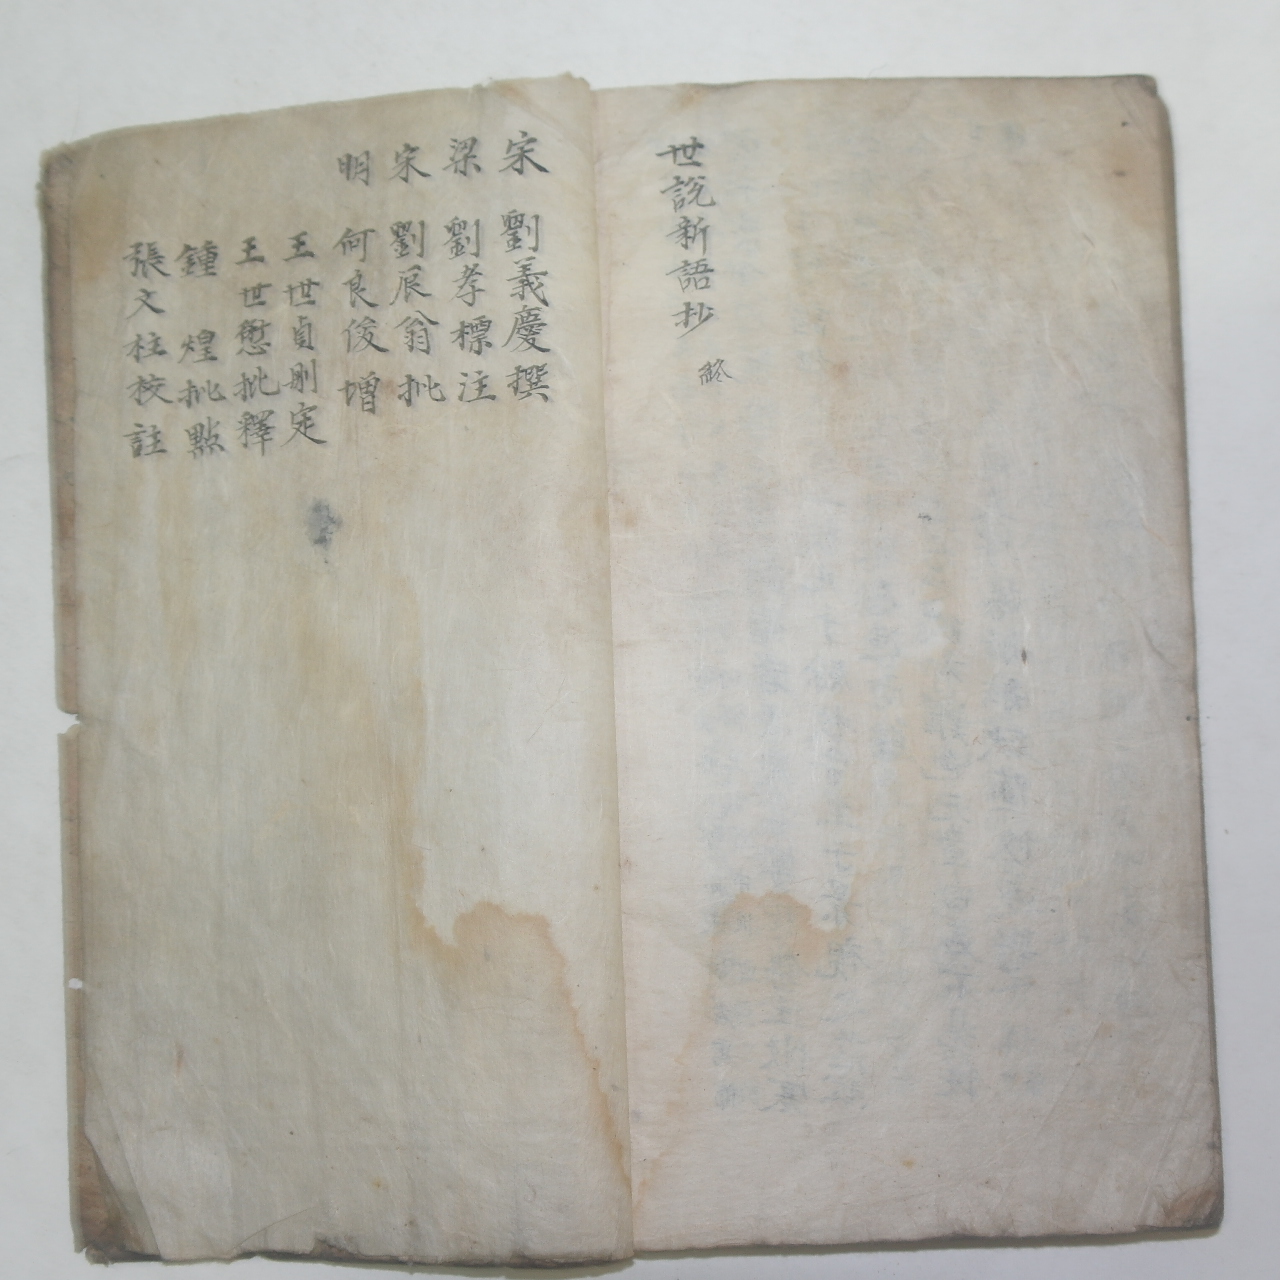 世說新語抄 終
宋 劉義慶撰
梁 劉孝標注
宋 劉辰翁批
明 何良俊增
王世貞刪定
王世懋批釋
鍾 煌批點
張文柱校註